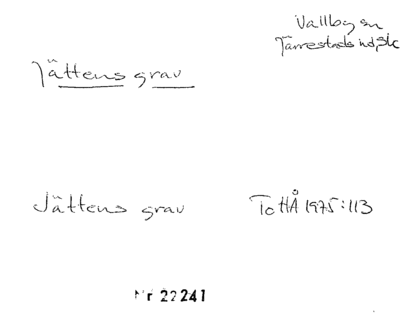 Vallby sn
Järrestads hd, Sk
Jättens grav
Jättens grav ToHÅ 1975:113
Nr 22241